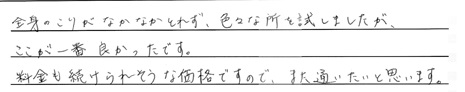 全身のこりがなかなかとれず、色々な所を試しましたが、
ここが一番良かったです。
料金も続けられそうな価格ですので、また通いたいと思います。